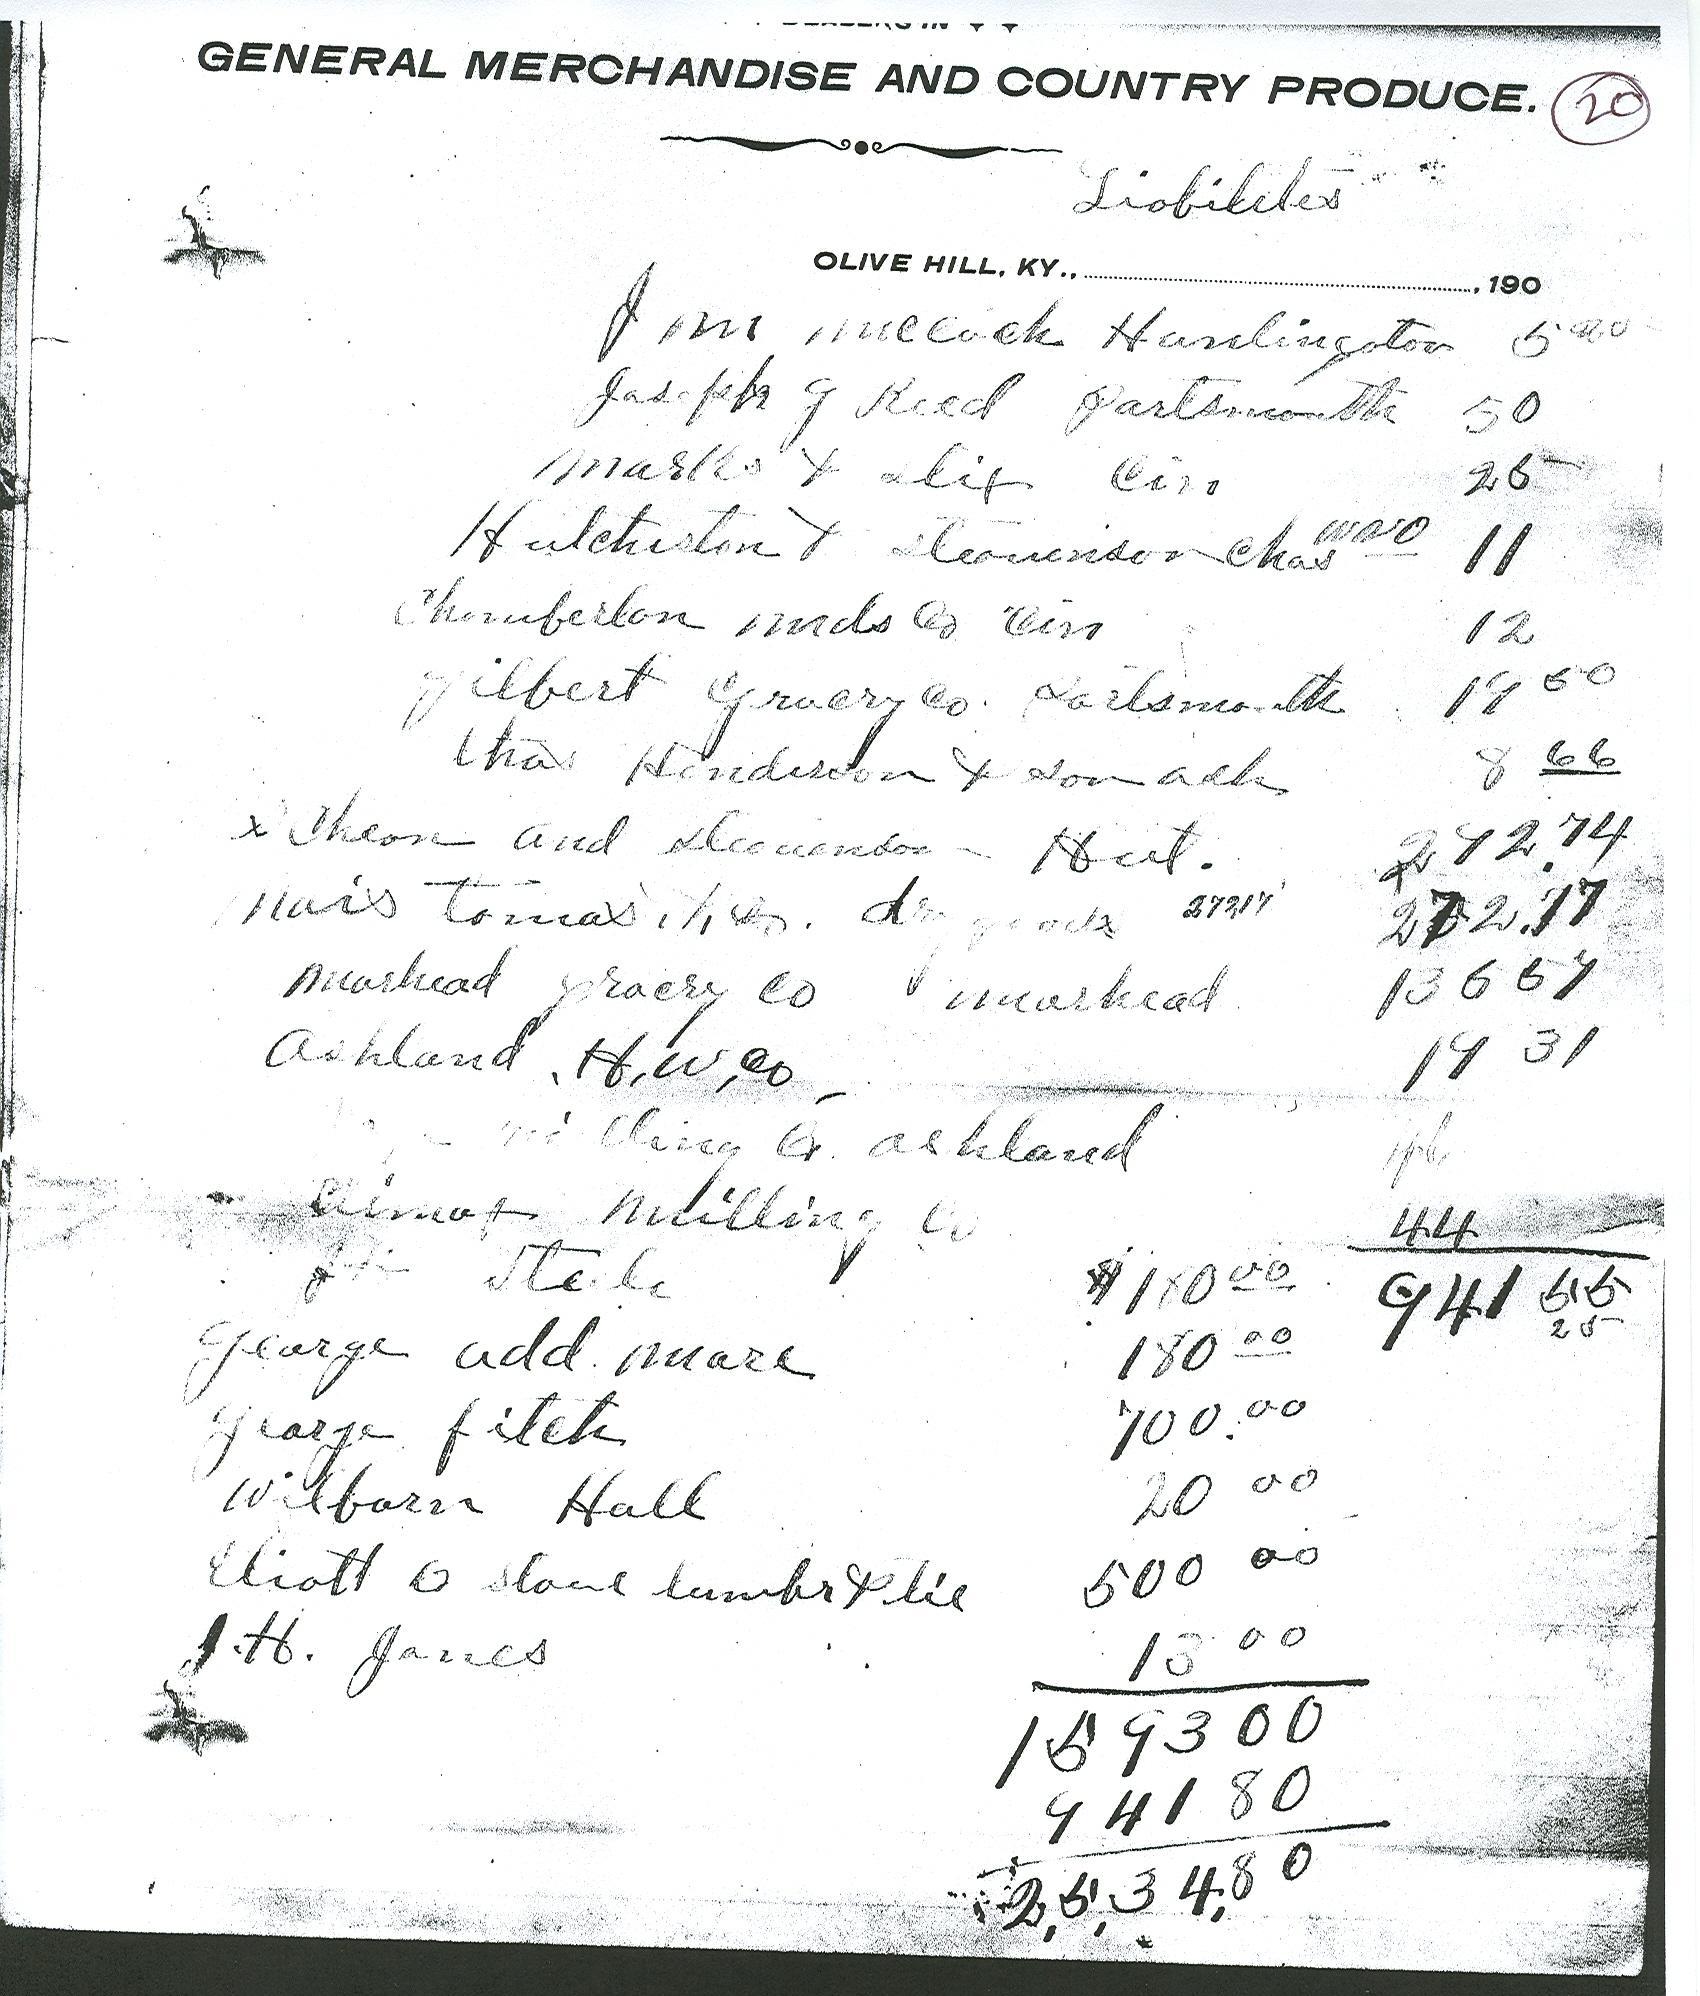 DEALERS IN
GENERAL MERCHANDISE AND COUNTRY PRODUCE.
20
Liabiletes
OLIVE HILL, KY., , 190
J m Huntington 5 00
Joseph G Reed Partsmouth 50
Marks & Stix Cin 25
Hutchiston & Steavenson Chas 11
Chamberlan Cin 12
Gilbert Gracery Co. Partsmouth 19 50
Chas Henderson & Son Ash 8 66
x and Steavenson Hunt. 272.74
dry goods 27217 272.77
Marhead gracery Co marhead 136 57
Ashland H, W, Co 19 31
milling Co. ashland
Climax Milling Co 44
Steele $180 00 941 55
25
George add more 180 00
George fitch 700.00
Wilbarn Hall 20 00
Eliott stave lumbr & tie 500 00
J.H. Janes 13 00
1593 00
941 80
2,534,80